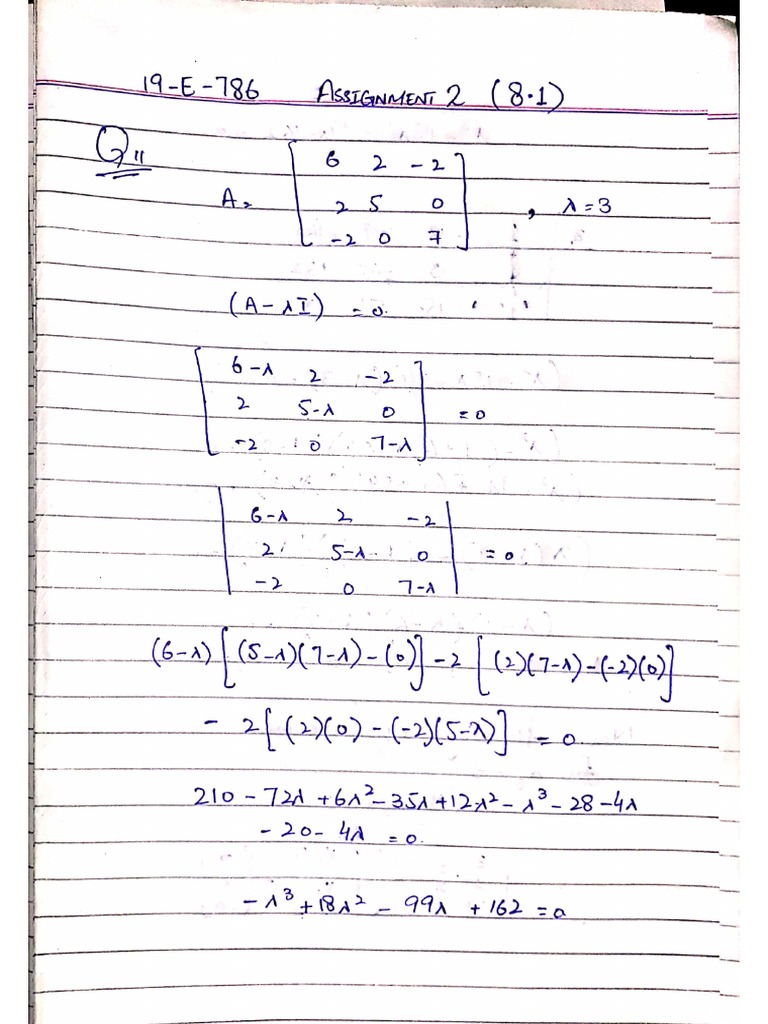 19-E-786 ASSIGNMENT 2 (8.1)
Q11
A = [ 6 2 -2
2 5 0
-2 0 7 ] , λ=3
(A-λI) = 0.
[ 6-λ 2 -2
2 5-λ 0
-2 0 7-λ ] = 0
| 6-λ 2 -2 |
| 2 5-λ 0 | = 0.
| -2 0 7-λ |
(6-λ)[(5-λ)(7-λ)-(0)]-2[(2)(7-λ)-(-2)(0)]
- 2[(2)(0)-(-2)(5-λ)] = 0
210 - 72λ + 6λ² - 35λ + 12λ² - λ³ - 28 - 4λ
- 20 - 4λ = 0.
- λ³ + 18λ² - 99λ + 162 = 0